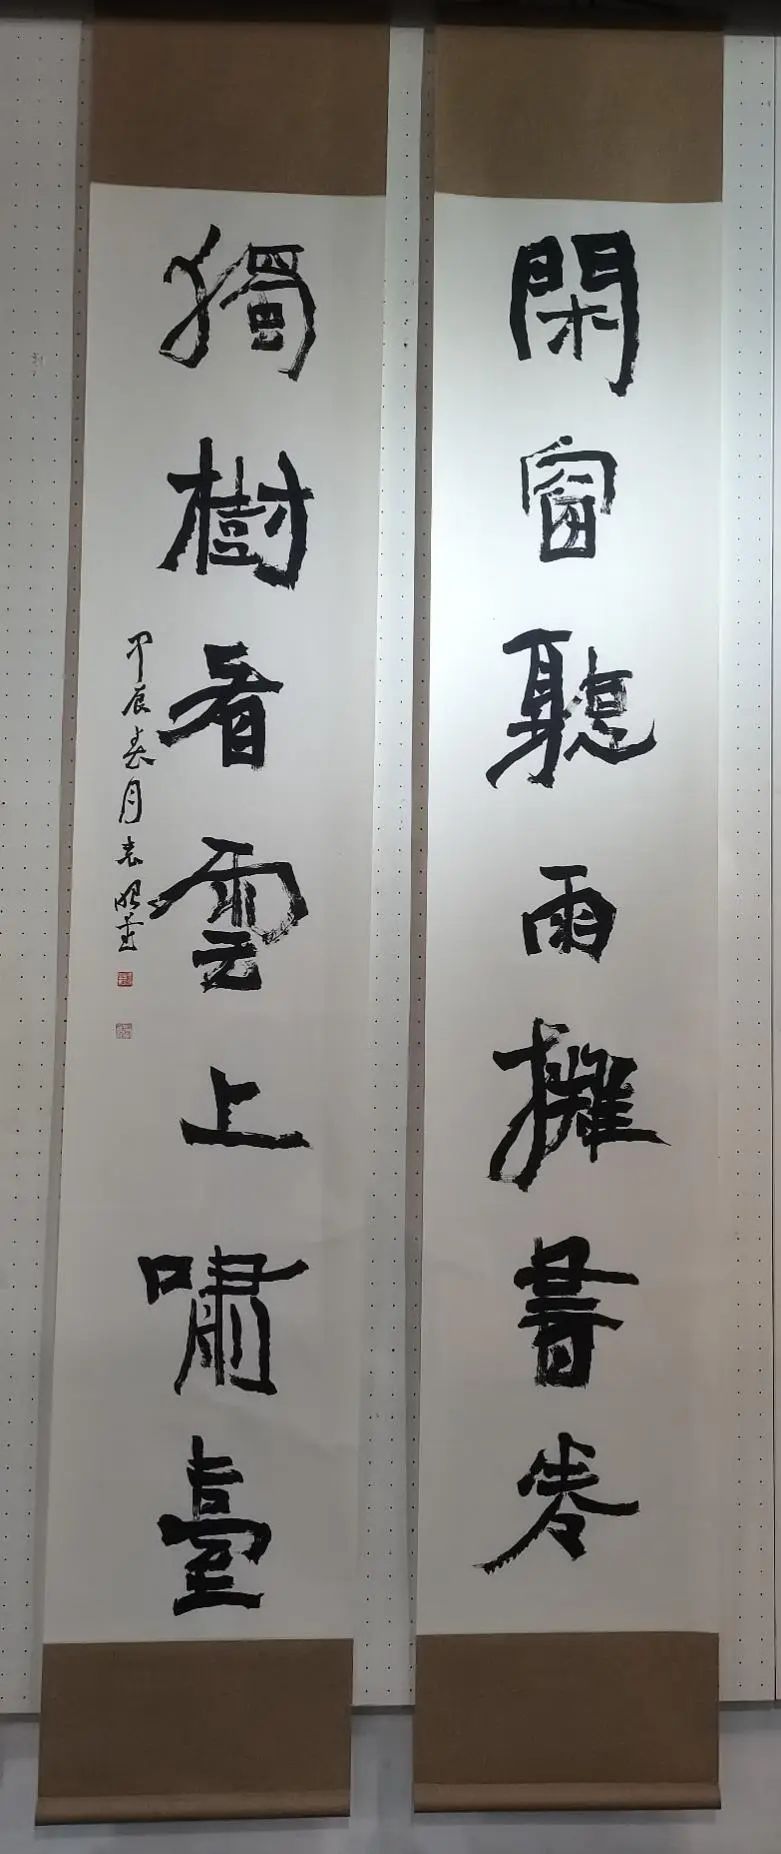 閑窗聽雨攤書卷
獨樹看雲上嘯臺
甲辰春月袁明書